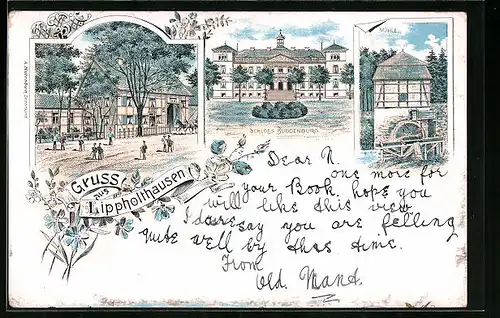 MÜHLE
SCHLOSS BUDDENBURG
Gruss
aus
Lippholthausen
Dear N.
one more for
your Book. hope you
will like this view
I daresay you are felling
quite well by thas time.
From
Old. Mand.